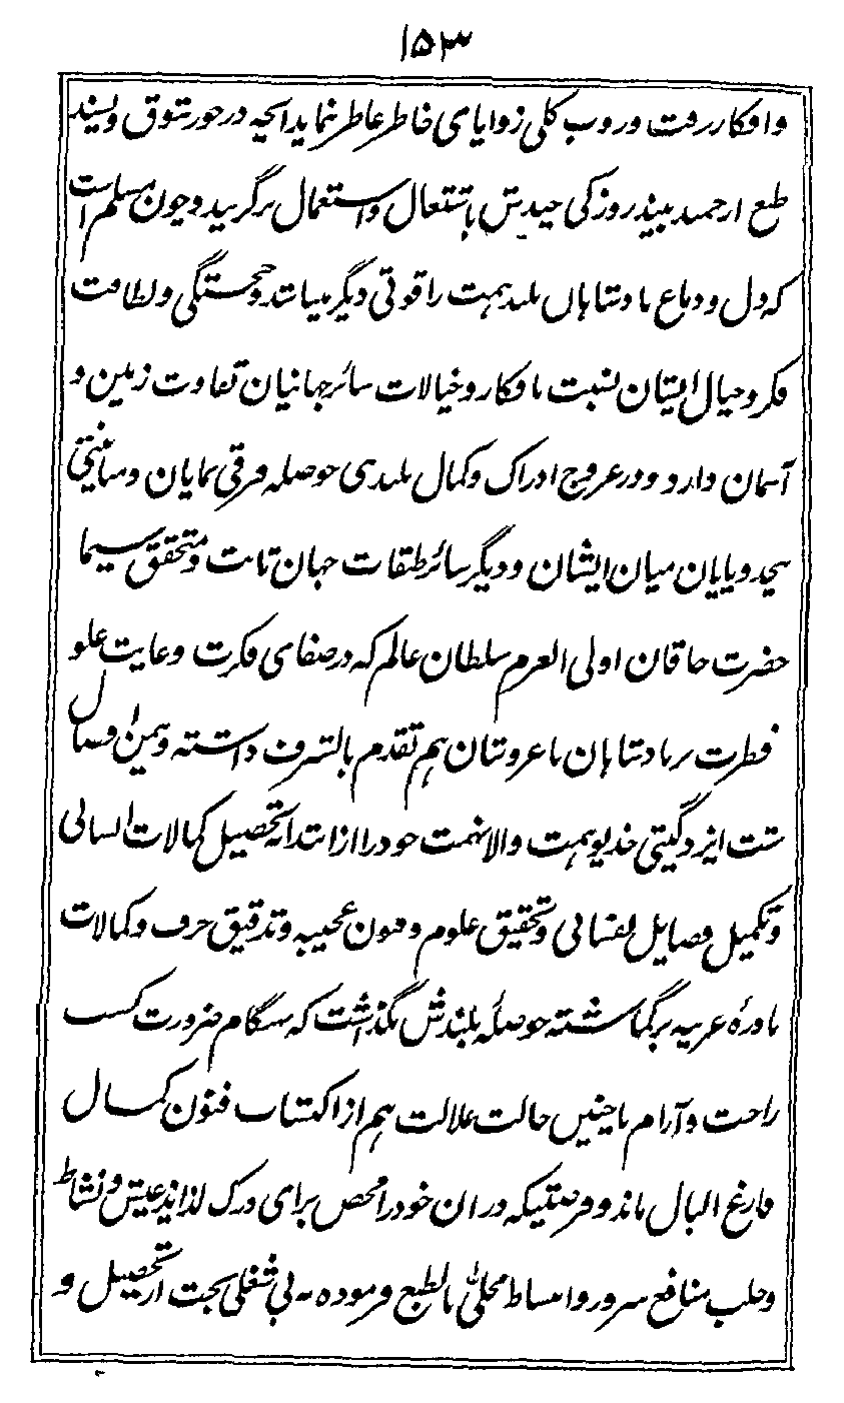 ۱۵۳
و افکار رفت و روب کلی زوایای خاطر عاطر نماید آنچه در خور تنوق و پسند
طبع ارجمند بیند روزکی چندش باشتغال و استعمال برگزیند و چون مسلم است
که دل و دماغ پادشاهان بلند همت را قوتی دیگر میباشد و خجستگی و لطافت
فکر و خیال ایشان نسبت بافکار و خیالات سائر جهانیان تفاوت زمین و
آسمان دارد و در عروج ادراک و کمال بلندی حوصله فرقی نمایان و مباینتی
بیحد و پایان میان ایشان و دیگر سائر طبقات جهان ثابت و متحقق سیما
حضرت خاقان اولی العزم سلطان عالم که در صفای فکرت و غایت علو
فطرت بر پادشاهان با عز و شان هم تقدم بالشرف داشته و بیمن افضال
ایزد گیتی خدیو همت والا نهمت خود را از ابتدا بتحصیل کمالات انسانی
و تکمیل فصایل نفسانی و تحقیق علوم و فنون عجیبه و تدقیق حرف و کمالات
نادره غریبه برگماشته حوصله بلندش نگذاشت که هنگام ضرورت کسب
راحت و آرام باچنین حالت علالت هم از اکتساب فنون کمال
فارغ البال ماند و فرصتیکه در ان خود را محض برای درک لذایذ عیش و نشاط
و جلب منافع سرور و انبساط محلی بالطبع فرموده به بی شغلی بحت از تحصیل و